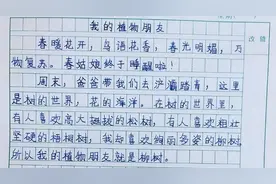 我的植物朋友
春暖花开，鸟语花香，春光明媚，万
物复苏。春姑娘终于睡醒啦！
周末，爸爸带我们去浐灞踏青，这里
是树的世界，花的海洋。在树的世界里，
有人喜欢高大挺拔的松树，有人喜欢粗壮
坚硬的梧桐树，我却喜欢婀丽多姿的柳树，
所以我的植物朋友就是柳树。